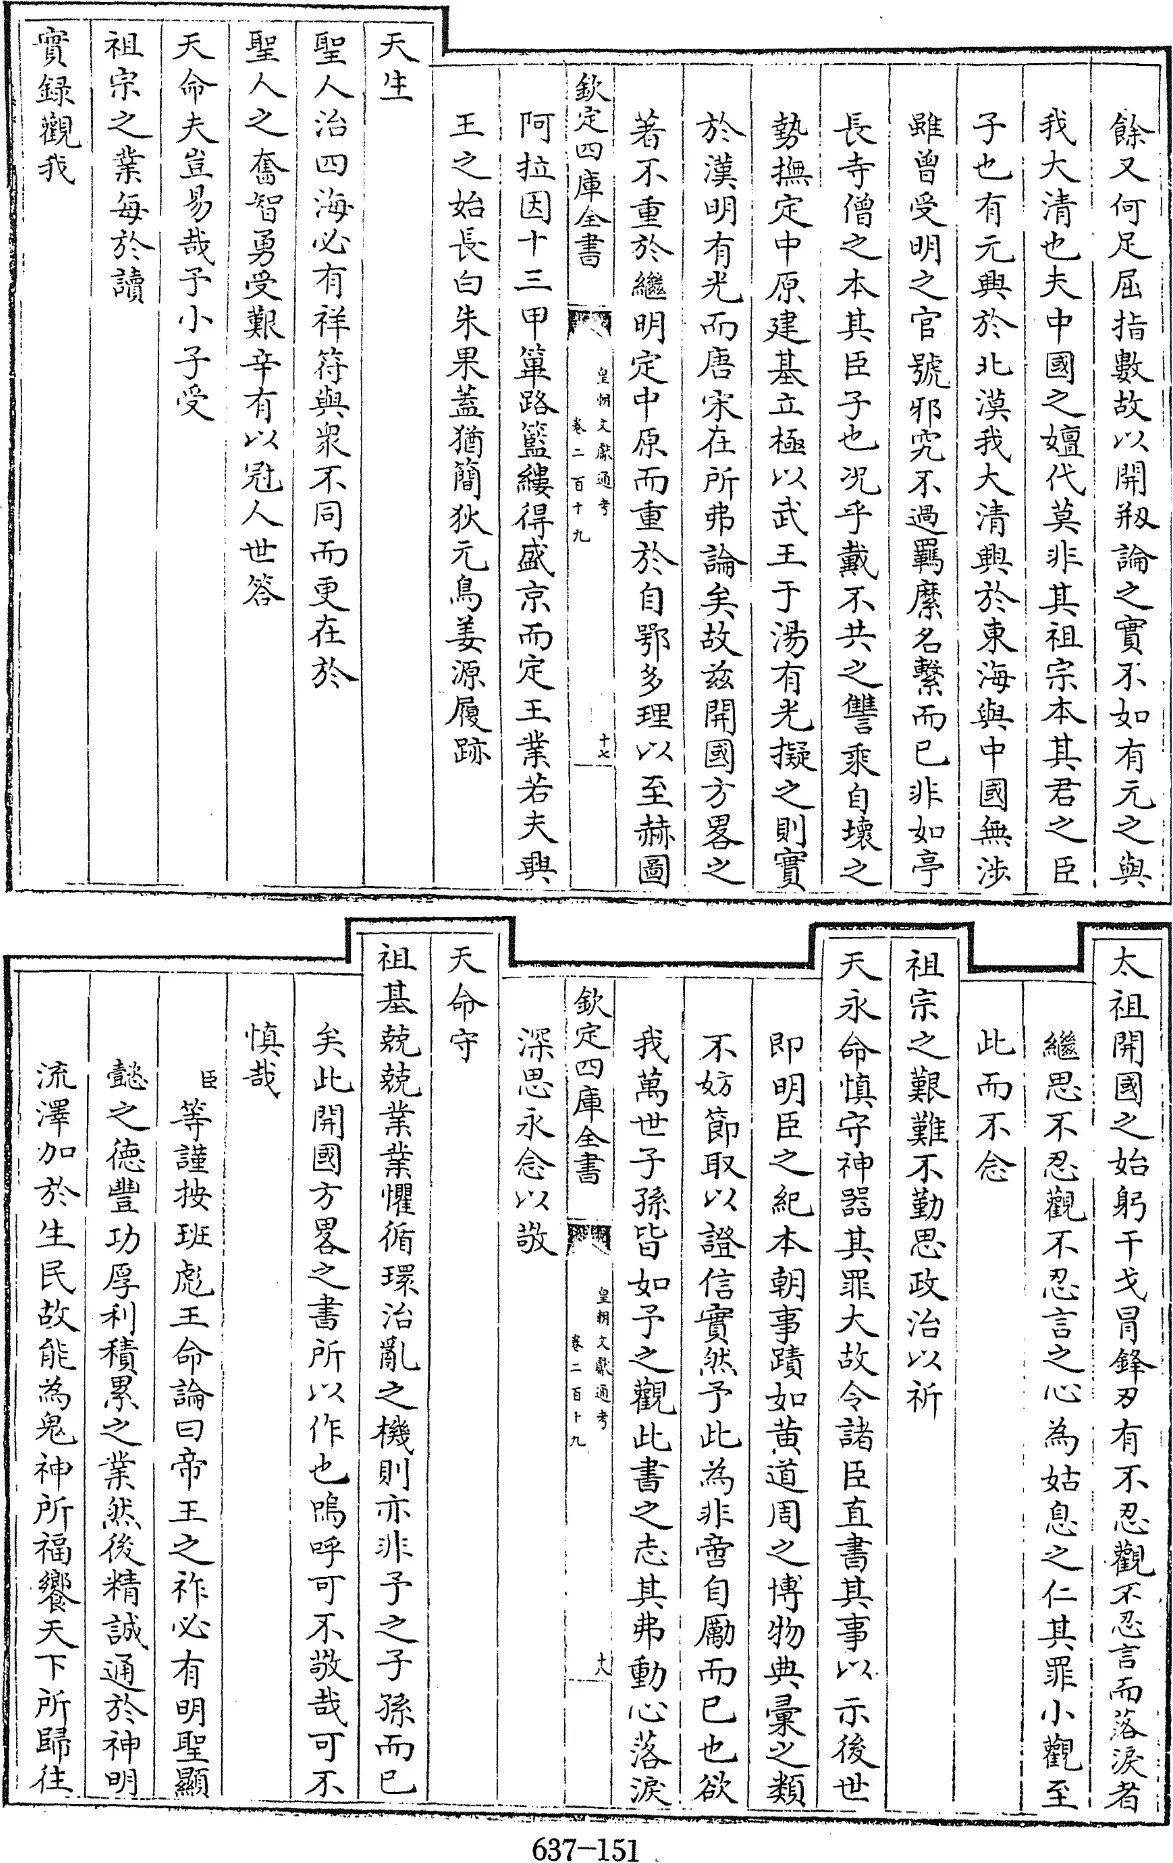 餘又何足屈指數故以開剏論之實不如有元之與
我大清也夫中國之嬗代莫非其祖宗本其君之臣
子也有元興於北漠我大清興於東海與中國無涉
雖曾受明之官號邪究不過羈縻名繫而已非如亭
長寺僧之本其臣子也况乎戴不共之讐乘自壞之
勢撫定中原建基立極以武王于湯有光擬之則實
於漢明有光而唐宋在所弗論矣故兹開國方畧之
著不重於繼明定中原而重於自鄂多理以至赫圖
欽定四庫全書
皇朝文獻通考
卷二百十九
十七
阿拉因十三甲篳路籃縷得盛京而定王業若夫興
王之始長白朱果蓋猶簡狄元鳥姜源履跡
天生
聖人治四海必有祥符與衆不同而更在於
聖人之奮智勇受艱辛有以冠人世答
天命夫豈易哉予小子受
祖宗之業每於讀
實録觀我
太祖開國之始躬干戈冒鋒刃有不忍觀不忍言而落淚者
繼思不忍觀不忍言之心為姑息之仁其罪小觀至
此而不念
祖宗之艱難不勤思政治以祈
天永命慎守神器其罪大故令諸臣直書其事以示後世
即明臣之紀本朝事蹟如黄道周之博物典彙之類
不妨節取以證信實然予此為非啻自勵而已也欲
我萬世子孫皆如予之觀此書之志其弗動心落淚
欽定四庫全書
皇朝文獻通考
卷二百十九
十八
深思永念以敬
天命守
祖基兢兢業業懼循環治亂之機則亦非予之子孫而已
矣此開國方畧之書所以作也嗚呼可不敬哉可不
慎哉
臣等謹按班彪王命論曰帝王之祚必有明聖顯
懿之德豐功厚利積累之業然後精誠通於神明
流澤加於生民故能為鬼神所福饗天下所歸往
637-151